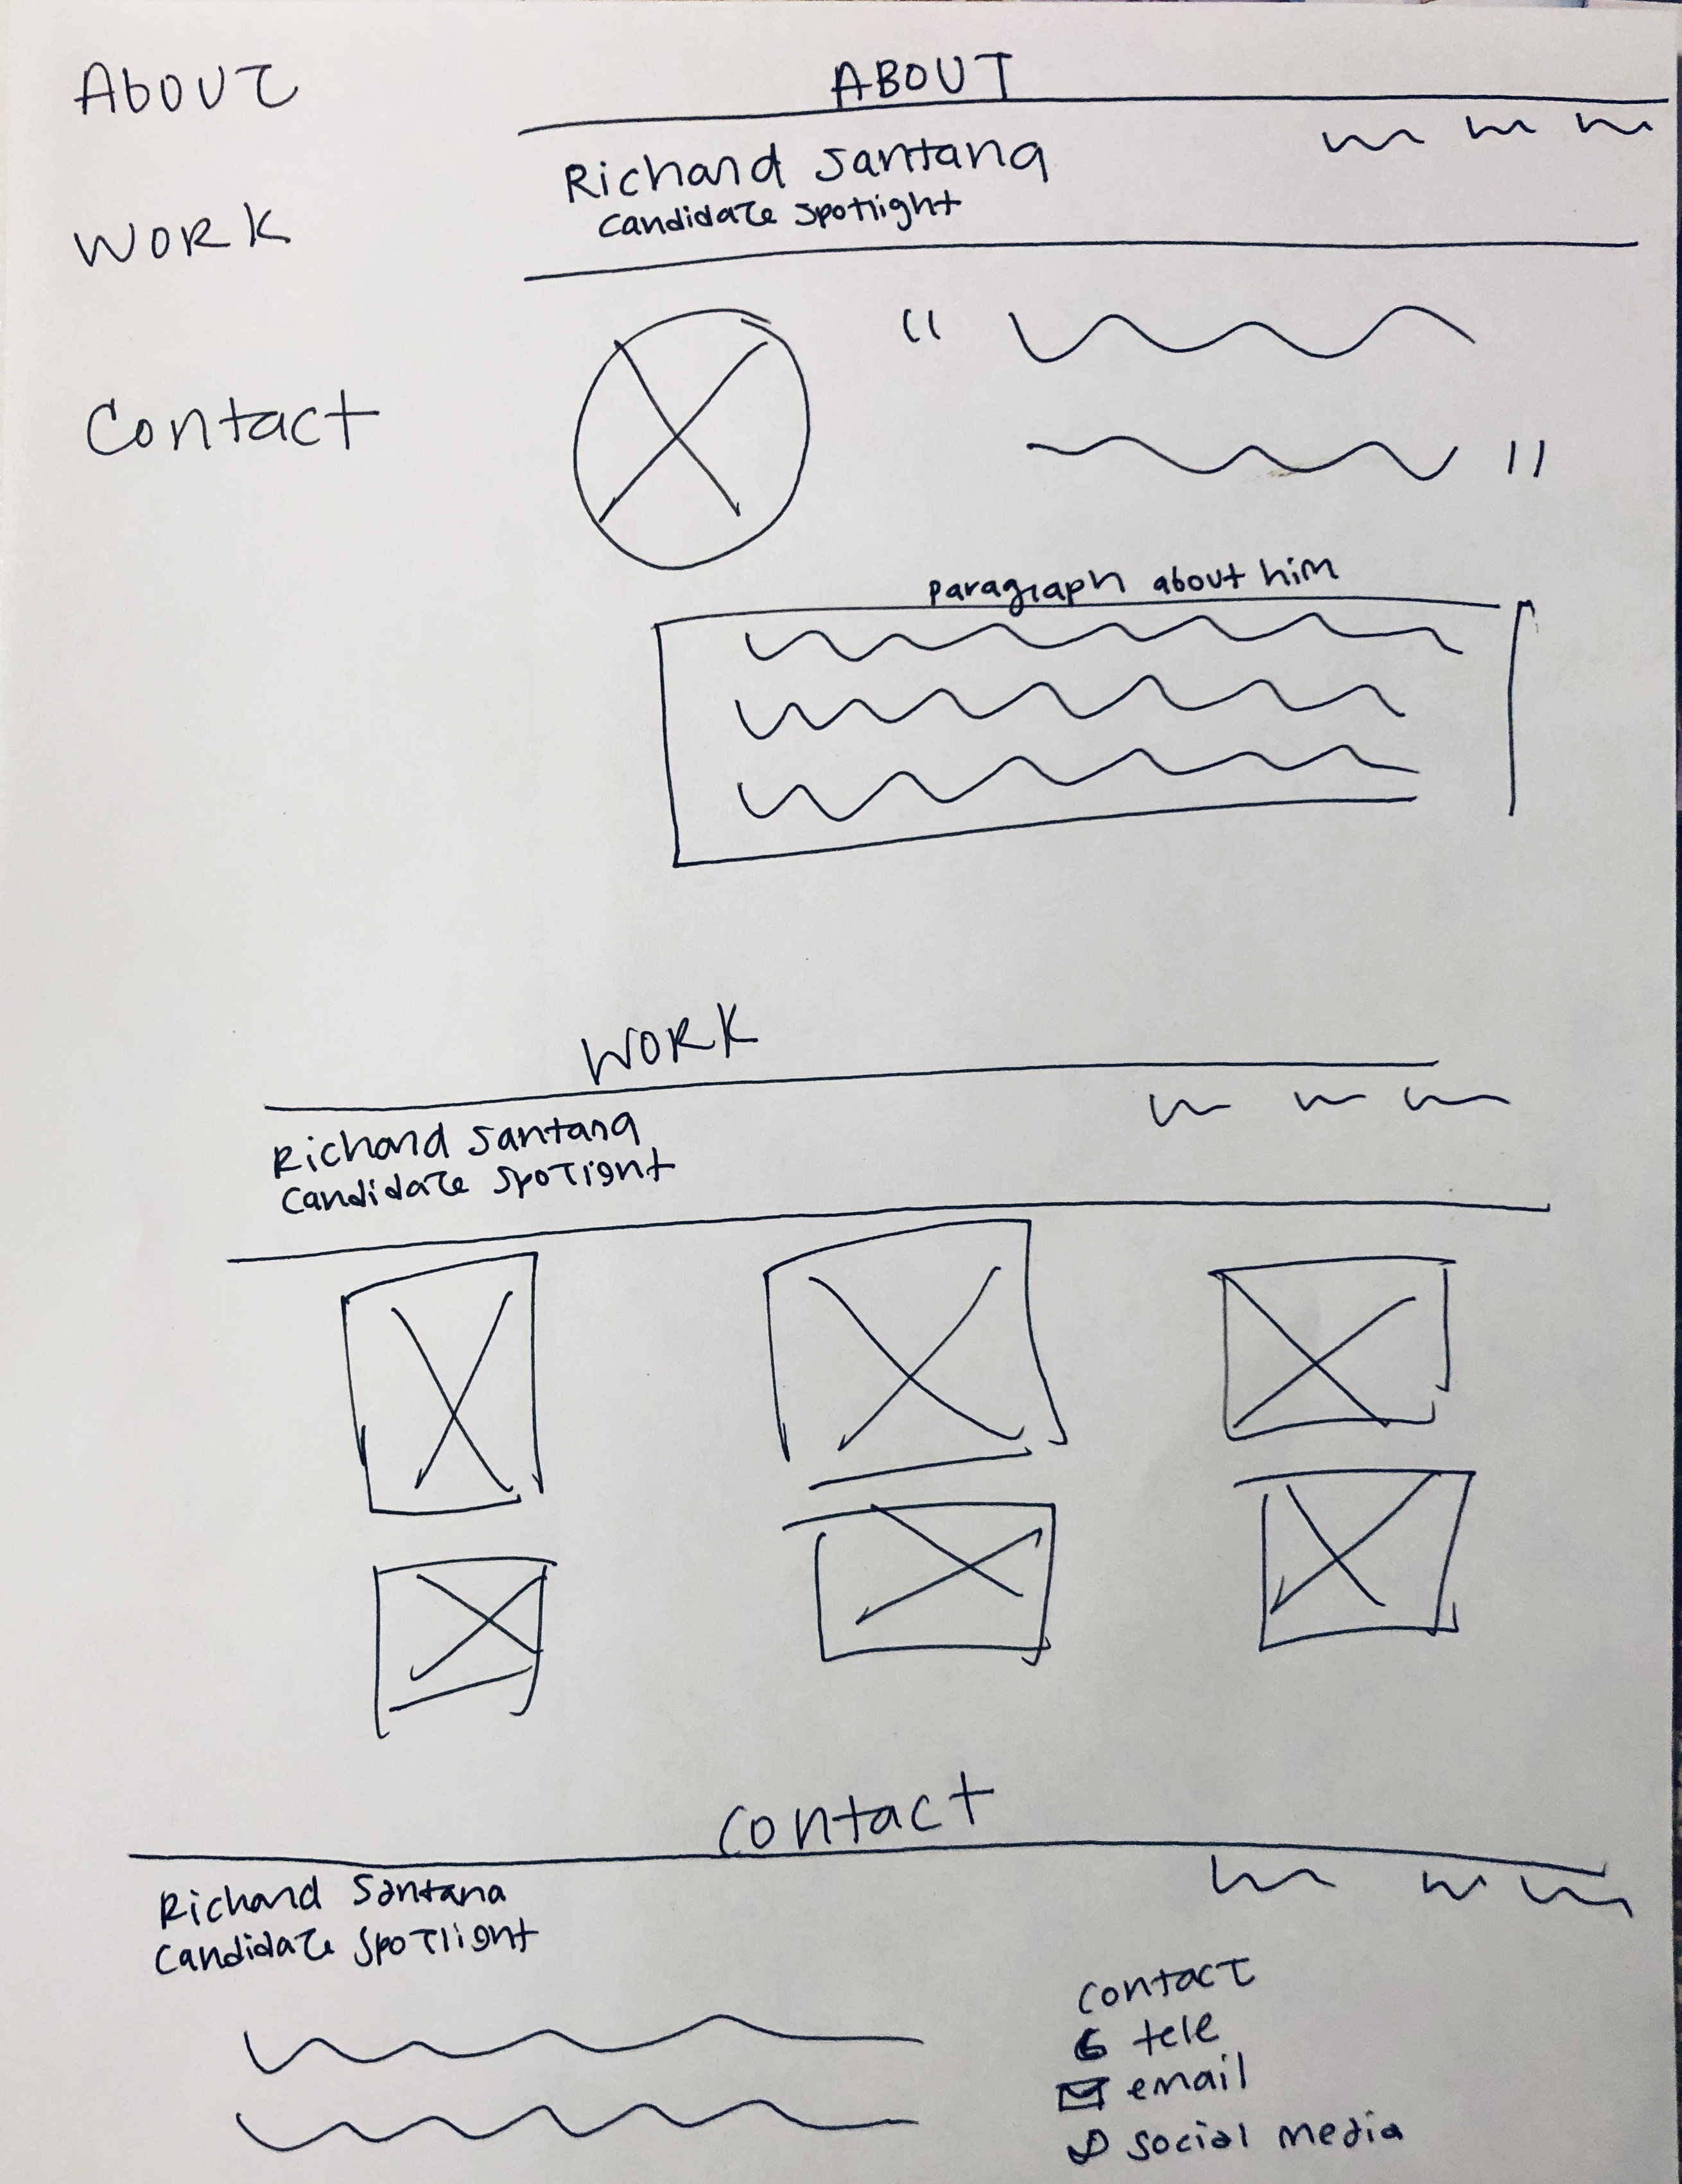 About
Work
Contact
ABOUT
Richard Santana
Candidate Spotlight
“
”
Paragraph about him
WORK
Richard Santana
Candidate Spotlight
Contact
Richard Santana
Candidate Spotlight
Contact
tele
email
social media